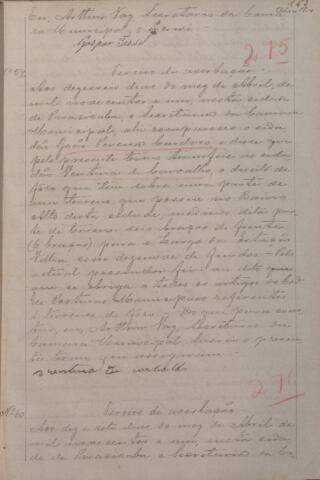 Eu, Arthur Vaz, Secretario da Cama-
ra Municipal, o escrevi.
Gaspar
215
Nº 59
Termo de averbação
Aos dezesseis dias do mez de Abril, de
mil novecentos e um, nesta cidade
de Piracicaba, e Secretaria da Camara
Municipal, ahi compareceu o cida-
dão João Pereira Cardozo e disse que
pelo presente termo transfere ao cida-
dão Ventura de Carvalho, o direito de
fôro que tem sobre uma parte de
um terreno que possue no Bairro
Alto desta cidade, medindo dita par-
te de terreno seis braças de frente
(6 braças) para o Largo da Estação
com dezenove de fundos. Pelo
foi dito que
que se obriga a todos os artigos do Cod.
de Posturas Municipaes referentes
a terrenos de fôro. Do que para cons-
tar, eu, Arthur Vaz, Secretario da
Camara Municipal, lavrei o presen-
te termo que assignam.
Ventura de Carvalho
216
Nº 60
Termo de averbação
Aos dez e sete dias do mez de Abril de
mil novecentos e um, nesta cida-
de de Piracicaba e Secretaria da Ca-